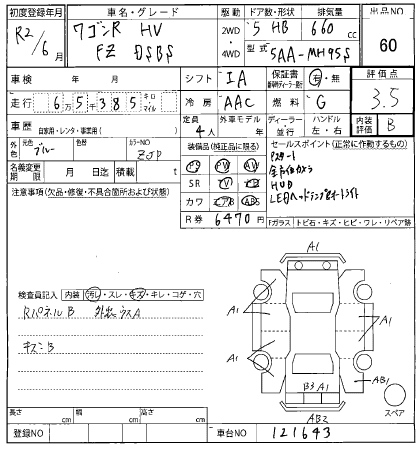 初度登録年月
車名・グレード
駆動
ドア数・形状
排気量
出品NO
R2/6月
ワゴンR HV
FZ DSBS
2WD
・
4WD
5 HB
660
cc
型式
5AA-MH95S
60
車検
年 月
シフト
IA
保証書
有・無
評価点
走行
6万5千385
キロ
マイル
冷房
AAC
燃料
G
3.5
車歴
自家用・レンタ・事業用( )
定員
4人
外車モデル
年
ディーラー
並行
ハンドル
左・右
内装
評価
B
外色
元色
ブルー
色替
カラーNO
ZJP
装備品(純正品に限る)
セールスポイント(正常に作動するもの)
名義変更
期限
月 日
積載
t
PS
PW
AW
SR
TV
カワ
エアB
ABS
R券
6470円
Pスタート
全方位カメラ
HUD
LEDヘッドランプオートライト
注意事項(欠品・修復・不具合箇所および状態)
Fガラス
トビ石・キズ・ヒビ・ワレ・リペア跡
検査員記入
内装
汚レ・スレ・キズ・キレ・コゲ・穴
Rパネル B
キズ B
A1
A1
A1
A1
B3 A1
AB1
AB2
スペア
長さ
cm
幅
cm
高さ
cm
登録NO
年 月 日
車台NO
121643